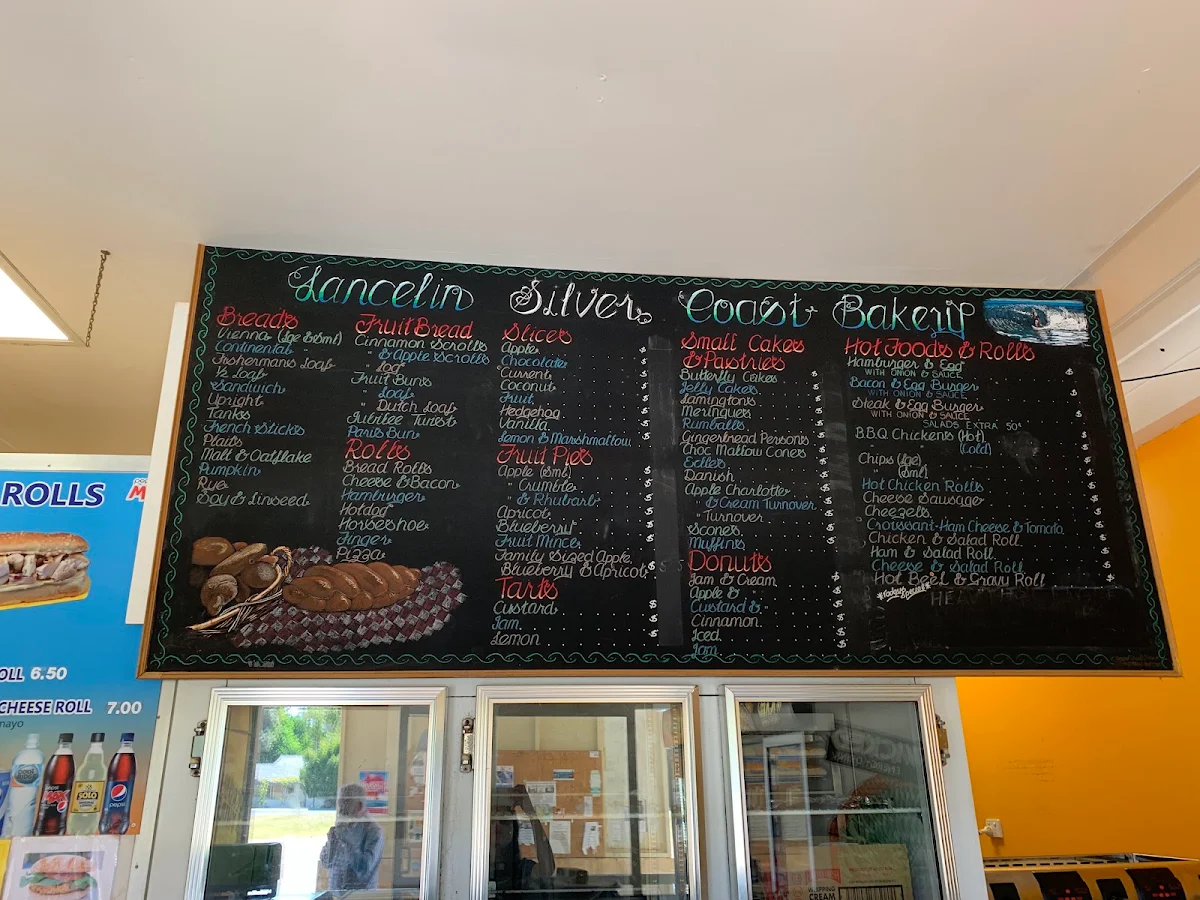 Lancelin Silver Coast Bakery
Breads
Vienna (lge & sml)
Continental "
Fishermans Loaf
½ Loaf
Sandwich
Upright
Tanks
French Sticks
Plaits
Malt & Oatflake
Pumpkin
Rye
Soy & Linseed
Fruit Bread
Cinnamon Scrolls
" & Apple Scrolls
" Log
Fruit Buns
" Loaf
" Dutch Loaf
Jubilee Twist
Paris Bun
Rolls
Bread Rolls
Cheese & Bacon
Hamburger
Hotdog
Horseshoe
Finger
Pizza
Slices
Apple
Chocolate
Current
Coconut
Fruit
Hedgehog
Vanilla
Lemon & Marshmallow
Fruit Pies
Apple (sml)
" Crumble
" & Rhubarb
Apricot
Blueberry
Fruit Mince
Family Sized Apple,
Blueberry & Apricot
Tarts
Custard
Jam
Lemon
Small Cakes
& Pastries
Butterfly Cakes
Jelly Cakes
Lamingtons
Meringues
Rumballs
Gingerbread Persons
Choc Mallow Cones
Eclles
Danish
Apple Charlotte
" & Cream Turnover
" Turnover
Scones
Muffins
Donuts
Jam & Cream
Apple &
Custard &
Cinnamon
Iced
Jam
Hot Foods & Rolls
Hamburger & Egg
WITH ONION & SAUCE
Bacon & Egg Burger
WITH ONION & SAUCE
Steak & Egg Burger
WITH ONION & SAUCE
SALADS EXTRA 50¢
B.B.Q Chickens (Hot)
(Cold)
Chips (lge)
" (sml)
Hot Chicken Rolls
Cheese Sausage
Cheezels
Croissant-Ham Cheese & Tomato
Chicken & Salad Roll
Ham & Salad Roll
Cheese & Salad Roll
Hot Beef & Gravy Roll
ROLLS
OLL 6.50
CHEESE ROLL 7.00
mayo
MAX
SOLO
pepsi
WHIPPING
CREAM